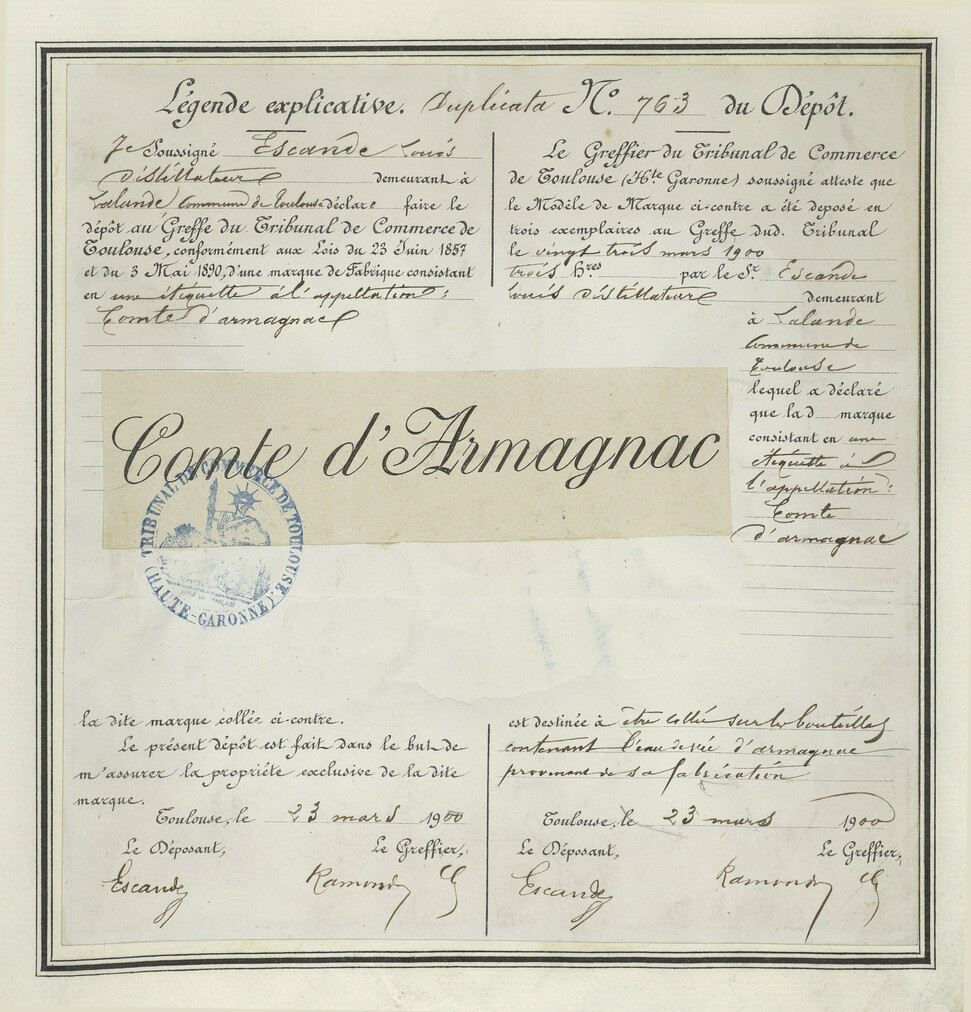 Légende explicative. Duplicata N.º 763 du Dépôt.
Je Soussigné Escande Louis
Distillateur demeurant à
Lalande Commune de Toulouse déclare faire le
dépôt au Greffe du Tribunal de Commerce de
Toulouse, conformément aux Lois du 23 Juin 1857
et du 3 Mai 1890, d'une marque de Fabrique consistant
en une étiquette à l'appellation :
Comte d'armagnac
Le Greffier du Tribunal de Commerce
de Toulouse (Hte Garonne) soussigné atteste que
le Modèle de Marque ci-contre a été déposé en
trois exemplaires au Greffe dud. Tribunal
le vingt trois mars 1900
trois hres par le Sr. Escande
Louis Distillateur demeurant
à Lalande
Commune de
Toulouse
lequel a déclaré
que la d marque
consistant en une
étiquette à
l'appellation :
Comte
d'armagnac
Comte d'Armagnac
TRIBUNAL DE COMMERCE DE TOULOUSE
(HAUTE-GARONNE)
la dite marque collée ci-contre.
Le présent dépôt est fait dans le but de
m'assurer la propriété exclusive de la dite
marque.
Toulouse, le 23 mars 1900
Le Déposant, Le Greffier,
Escande Ramond
est destinée à être collée sur les bouteilles
contenant l'eau de vie d'armagnac
provenant de sa fabrication
Toulouse, le 23 mars 1900
Le Déposant, Le Greffier,
Escande Ramond